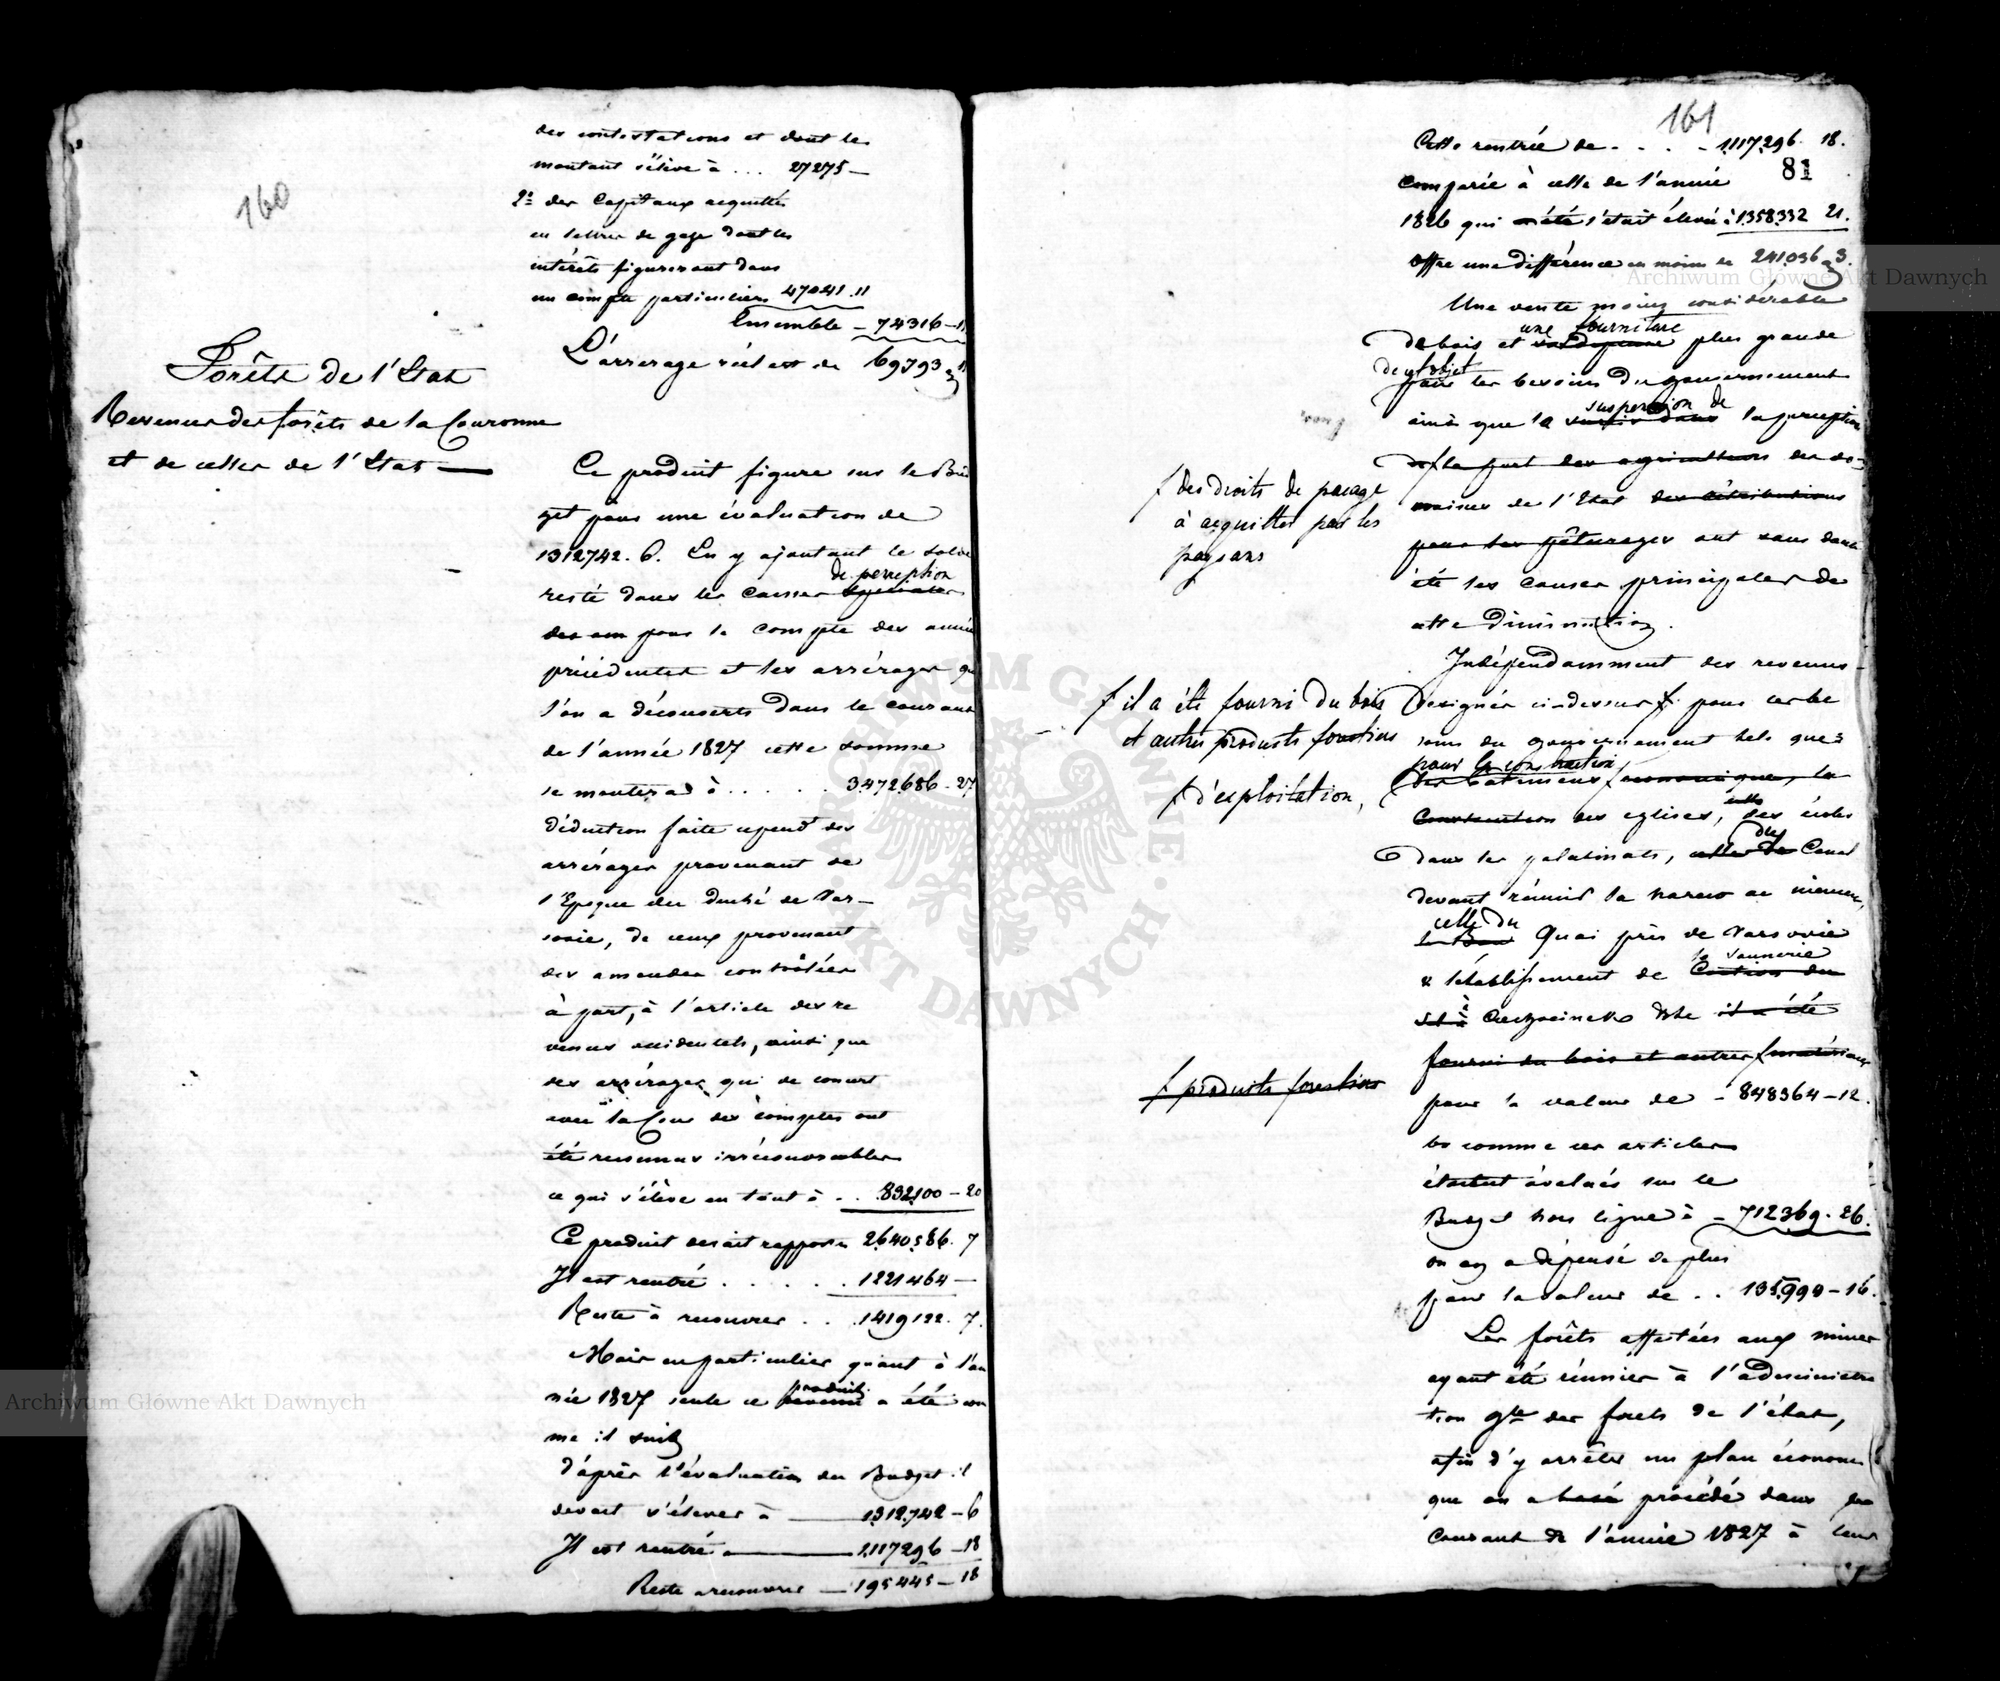 160
des contestations et dont le
montant s'élève à ... 27275 —
2° des Capitaux acquittés
en lettres de gage dont les
intérêts figureront dans
un compte particulier 47041.11
Ensemble — 74316 — 11
L'arrerage réel est de 69793
Forêts de l'Etat
Revenus des forêts de la Couronne
et de celles de l'Etat —
Ce produit figure sur le Bud
get pour une évaluation de
1312742. 6. En y ajoutant le solde
de perception
resté dans les caisses
pour le compte des année
précédentes et les arrérages que
l'on a découverts dans le courant
de l'année 1827 cette somme
se montera à . . . . . 3,472,686 - 27
Déduction faite des
arrérages provenant de
l'Epoque du duché de Var-
sovie, de ceux provenant
des amendes contrôlées
à part, à l'article des re
venus accidentels, ainsi que
des arrérages qui de concert
avec la Cour des comptes ont
été reconnus irrécouvrables
ce qui s'élève en tout à . . 832,100 — 20
Ce produit devait rapporter 2,640,586. 7
Il est rentré . . . . . 1221464 —
Reste à recouvrer . . . 1419122. 7.
Mais en particulier quant à l'an
produit
née 1827 seule ce revenu a été com
me il suit
D'après l'évaluation du Budget il
devait s'élever à — 1,312,742 — 6
Il est rentré — 1,117,296 — 18
Reste à recouvrer — 195445 — 18
161
81
Cette rentrée de . . . - 1,117,296. 18.
comparée à celle de l'année
1826 qui a été s'était élevée à 1,358,332 21.
Offre une différence en moins de 241,036 3.
Une vente moins considérable
une fourniture
de bois et plus grande
de cet objet
pour les besoins du gouvernement
suspension de
ainsi que la la perception
de la part des agriculteurs des do-
maines de l'Etat des rétributions
pour les pâturages ont sans doute
été les causes principales de
cette diminution.
f des droits de pacage
à acquitter par les
paysans
Indépendamment des revenus
désignés ci-dessus f pour les be
soins du gouvernement tels que
pour la construction
des bâtimens économiques, la
construction des eglises, des écoles
du
dans les palatinats, celle de Canal
devant réunir la Narew au Niemen,
celle du
le Bau Quai près de Varsovie
la saunerie
& l'établissement de
à Ciechocinek
fourni du bois et autres f matériaux
pour la valeur de - 848364 — 12.
f il a été fourni du bois
et autres produits forestiers
f d'exploitation,
f produits forestiers
comme ces articles
étaient évalués sur le
Budget hors ligne à — 712369. 26.
on en a dépensé de plus
pour la valeur de . . 135,990 — 16.
Les forêts affectées aux mines
ayant été réunies à l'administra
tion gle des forêts de l'état,
afin d'y arrêter un plan économi
que on a procédé dans le
courant de l'année 1827 à leur
Archiwum Główne Akt Dawnych
Archiwum Główne Akt Dawnych
ARCHIWUM GŁÓWNE · AKT DAWNYCH ·